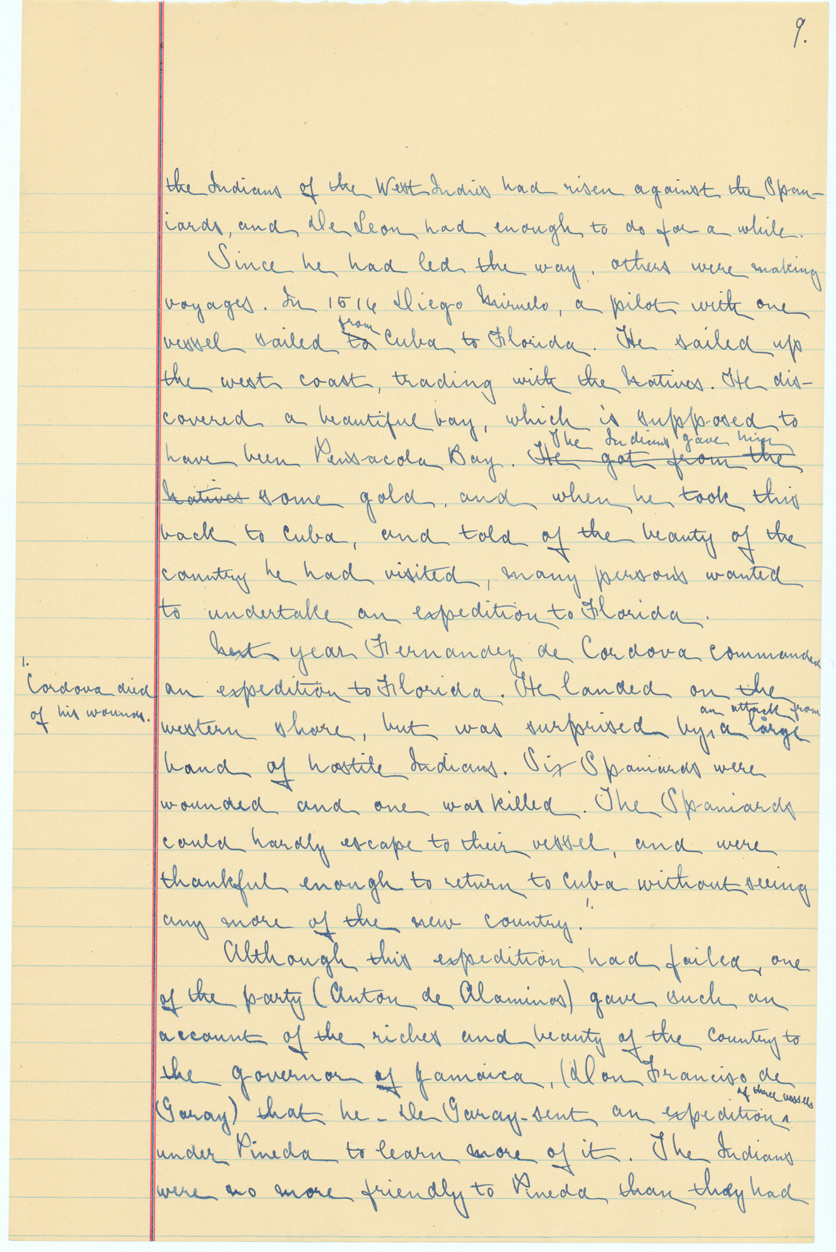 9.
the Indians of the West Indies had risen against the Span-
iards, and De Leon had enough to do for a while.
Since he had led the way, others were making
voyages. In 1516 Diego Miruelo, a pilot with one
from
vessel sailed to Cuba to Florida. He sailed up
the west coast, trading with the natives. He dis-
covered a beautiful bay, which is supposed to
The Indians gave him
have been Pensacola Bay. He got from the
natives some gold, and when he took this
back to Cuba, and told of the beauty of the
country he had visited, many persons wanted
to undertake an expedition to Florida.
Next year Fernandez de Cordova commanded
1.
Cordova died
of his wounds.
an expedition to Florida. He landed on the
an attack from
western shore, but was surprised by a large
band of hostile Indians. Six Spaniards were
wounded and one was killed. The Spaniards
could hardly escape to their vessel, and were
thankful enough to return to Cuba without seeing
any more of the new country.
Although this expedition had failed, one
of the party (Anton de Alaminos) gave such an
account of the riches and beauty of the country to
the governor of Jamaica, (Don Franciso de
of three vessels
Garay) that he - De Garay - sent an expedition
under Pineda to learn more of it. The Indians
were no more friendly to Pineda than they had